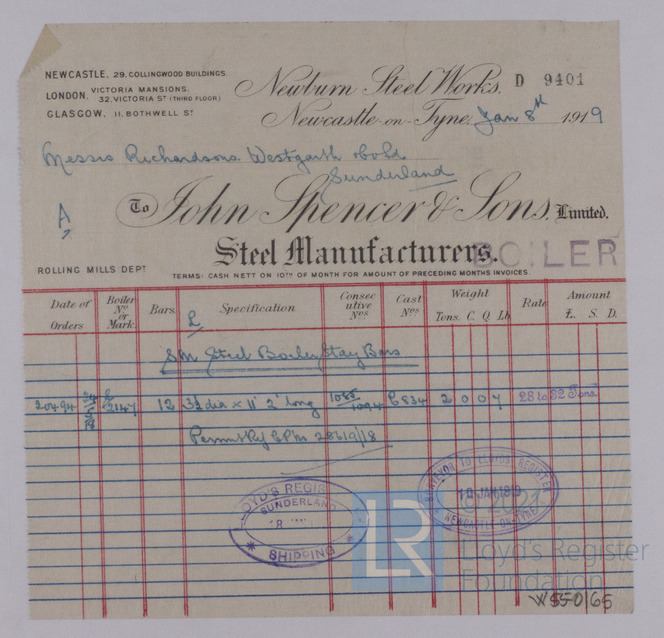 NEWCASTLE, 29. COLLINGWOOD BUILDINGS
LONDON, VICTORIA MANSIONS,
32, VICTORIA ST (THIRD FLOOR)
GLASGOW, 11, BOTHWELL ST
Newburn Steel Works, D 9401
Newcastle-on-Tyne, Jan 8th 1919
Messrs Richardsons Westgarth & Co Ld
Sunderland
A
To John Spencer & Sons, Limited.
Steel Manufacturers.
BOILER
ROLLING MILLS DEPT
TERMS: CASH NETT ON 10TH OF MONTH FOR AMOUNT OF PRECEDING MONTHS INVOICES
Date of Orders Boiler No or Mark. Bars. Specification Consecutive Nos Cast Nos Weight Tons. C. Q. Lb Rate Amount £. S. D.
SM Steel Boiler Stay Bars
20494 2147 12 3½ dia × 11' 2" long 1085/1094 6834 2 0 0 7
Permit
LLOYD'S REGISTER
SUNDERLAND
SHIPPING
SURVEYOR TO LLOYDS REGISTER
NEWCASTLE-ON-TYNE
LR
© 2021
Lloyd's Register
Foundation
W550/65